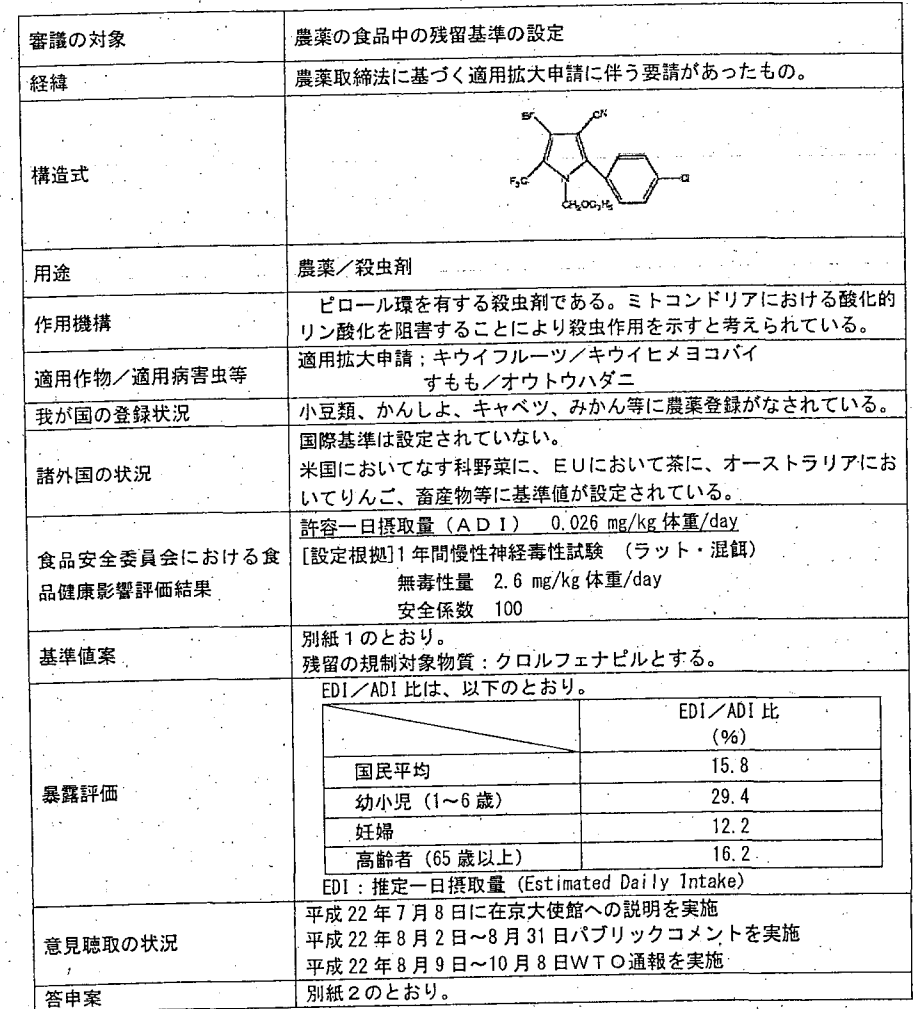 審議の対象
農薬の食品中の残留基準の設定
経緯
農薬取締法に基づく適用拡大申請に伴う要請があったもの。
構造式
Br
CN
F₃C
N
Cl
CH₂OC₂H₅
用途
農薬／殺虫剤
作用機構
ピロール環を有する殺虫剤である。ミトコンドリアにおける酸化的
リン酸化を阻害することにより殺虫作用を示すと考えられている。
適用作物／適用病害虫等
適用拡大申請；キウイフルーツ／キウイヒメヨコバイ
すもも／オウトウハダニ
我が国の登録状況
小豆類、かんしよ、キャベツ、みかん等に農薬登録がなされている。
諸外国の状況
国際基準は設定されていない。
米国においてなす科野菜に、EUにおいて茶に、オーストラリアにお
いてりんご、畜産物等に基準値が設定されている。
食品安全委員会における食
品健康影響評価結果
許容一日摂取量（ADI） 0.026 mg/kg 体重/day
[設定根拠]1年間慢性神経毒性試験 （ラット・混餌）
無毒性量 2.6 mg/kg 体重/day
安全係数 100
基準値案
別紙1のとおり。
残留の規制対象物質：クロルフェナピルとする。
暴露評価
EDI／ADI 比は、以下のとおり。
EDI／ADI 比
(%)
国民平均 15.8
幼小児 (1～6歳) 29.4
妊婦 12.2
高齢者 (65歳以上) 16.2
EDI：推定一日摂取量 (Estimated Daily Intake)
意見聴取の状況
平成22年7月8日に在京大使館への説明を実施
平成22年8月2日～8月31日パブリックコメントを実施
平成22年8月9日～10月8日WTO通報を実施
答申案
別紙2のとおり。